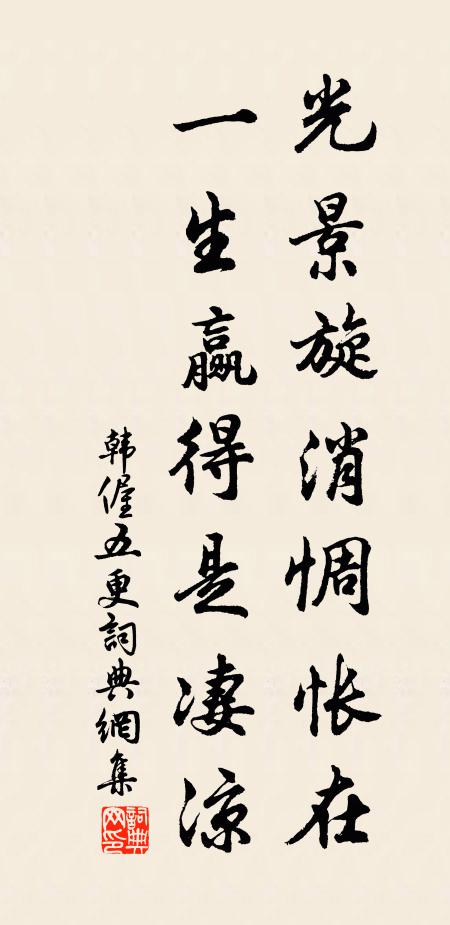 光景旋消惆怅在
一生赢得是凄凉
韩偓五更詞典網集
詞典網印